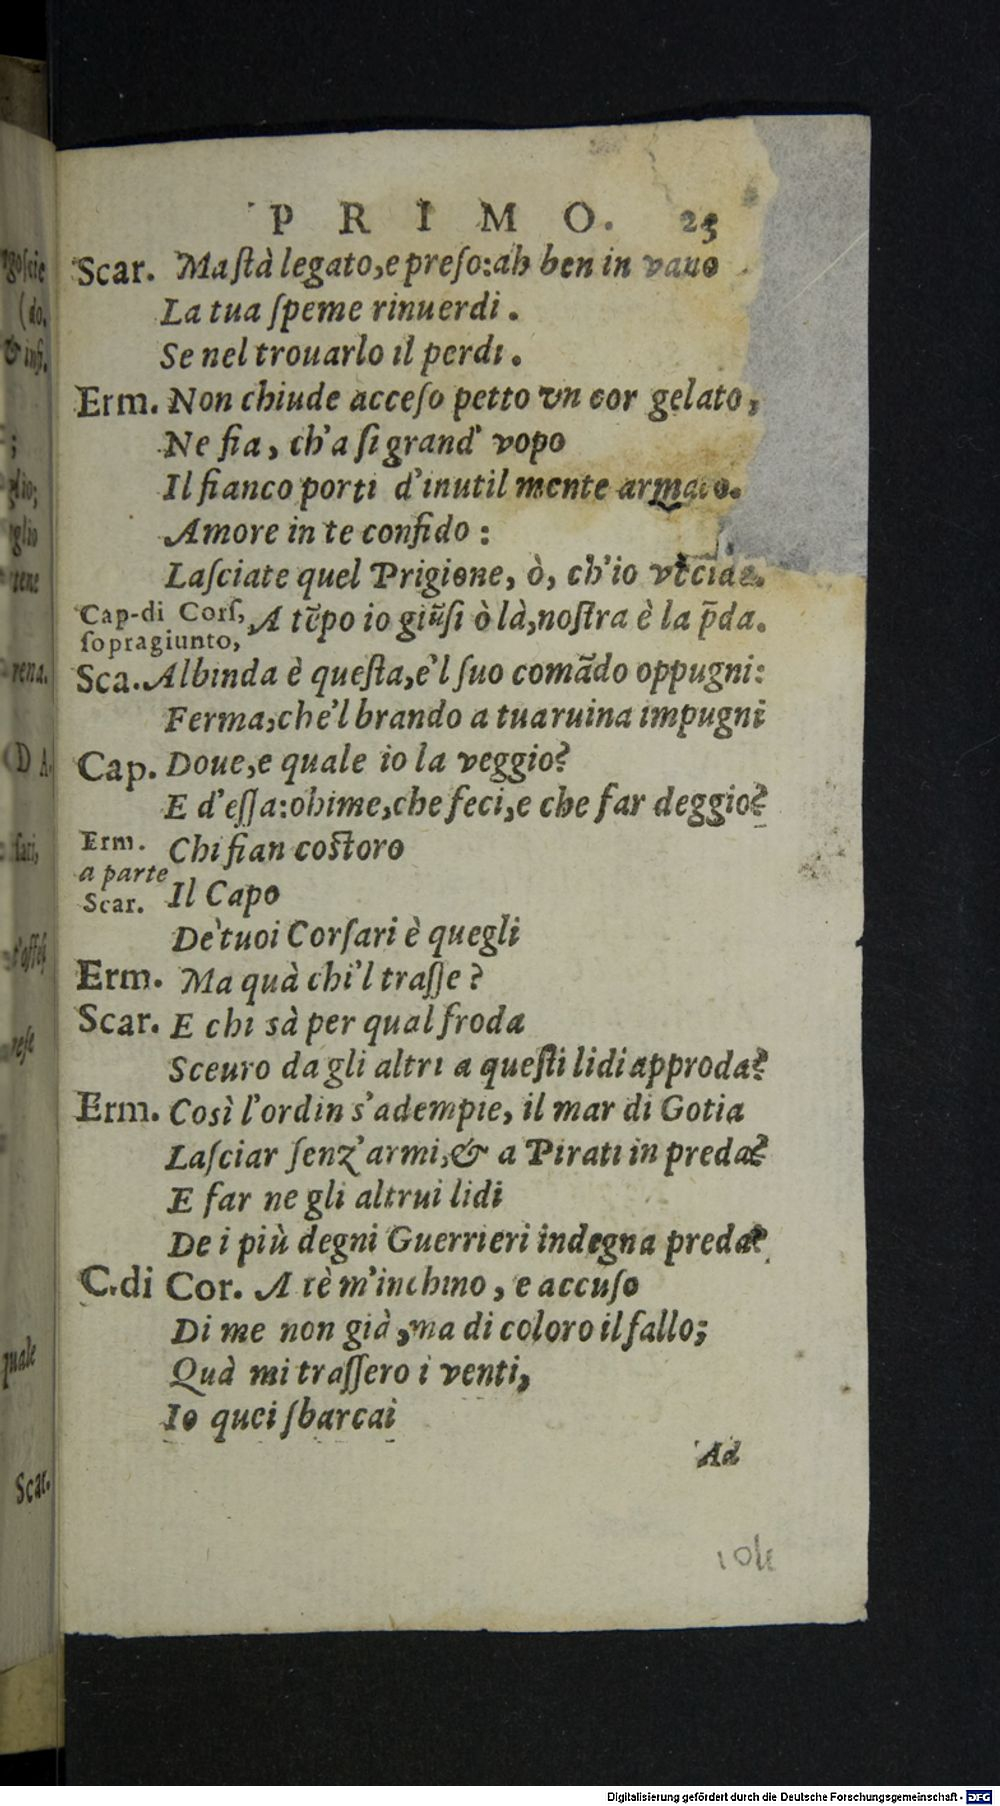 PRIMO. 25
Scar. Ma ſtà legato,e preſo:ah ben in vano
La tua ſpeme rinuerdi.
Se nel trouarlo il perdi.
Erm. Non chiude acceſo petto vn cor gelato,
Ne fia, ch'a ſi grand' vopo
Il fianco porti d'inutil mente armato.
Amore in te confido:
Laſciate quel Prigione, ò, ch'io vccida.
Cap-di Corſ, A tẽpo io giũſi ò là,noſtra è la p̃da.
ſopragiunto,
Sca. Albinda è queſta,e'l ſuo comãdo oppugni:
Ferma,che'l brando a tua ruina impugni
Cap. Doue,e quale io la veggio?
E d'eſſa:ohime,che feci,e che far deggio?
Erm. Chi fian coſtoro
a parte
Scar. Il Capo
De' tuoi Corſari è quegli
Erm. Ma quà chi'l traſſe?
Scar. E chi sà per qual froda
Sceuro da gli altri a queſti lidi approda?
Erm. Così l'ordin s'adempie, il mar di Gotia
Laſciar ſenz' armi,& a Pirati in preda?
E far ne gli altrui lidi
De i più degni Guerrieri indegna preda?
C.di Cor. A tè m'inchino, e accuſo
Di me non già,ma di coloro il fallo;
Quà mi traſſero i venti,
Io quei ſbarcai
Ad
goſcie
(do.
& inſi.
;
glio;
glio
rena.
DA.
ſari,
quale
Scar.
Digitalisierung gefördert durch die Deutsche Forschungsgemeinschaft - DFG